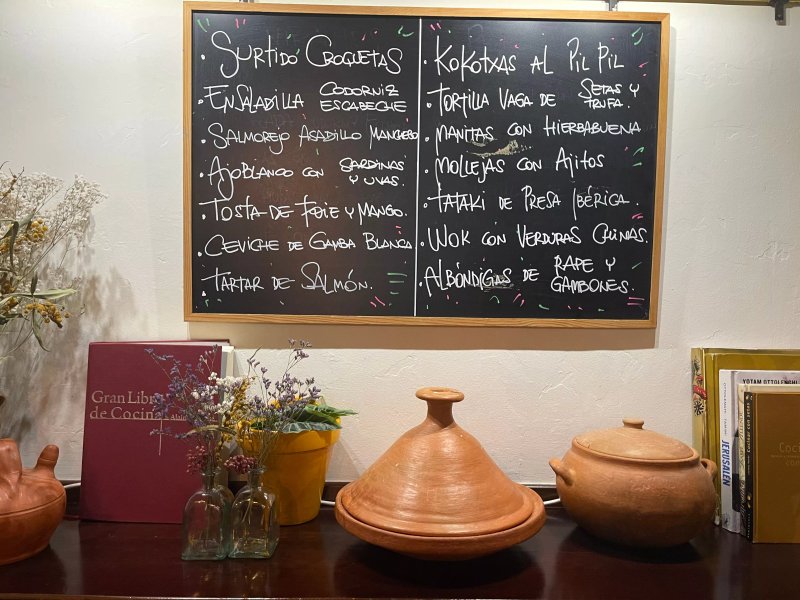 · SURTIDO CROQUETAS
· ENSALADILLA CODORNIZ ESCABECHE
· SALMOREJO ASADILLO MANCHEGO
· AJOBLANCO CON SARDINAS Y UVAS.
· TOSTA DE FOIE Y MANGO.
· CEVICHE DE GAMBA BLANCA
· TARTAR DE SALMÓN.
· KOKOTXAS AL PIL PIL
· TORTILLA VAGA DE SETAS Y TRUFA.
· MANITAS CON HIERBABUENA
· MOLLEJAS CON AJITOS
· TATAKI DE PRESA IBÉRICA.
· WOK CON VERDURAS CHINAS.
· ALBÓNDIGAS DE RAPE Y GAMBONES.
Gran Libro
de Cocina
YOTAM OTTOLENGHI
JERUSALEN